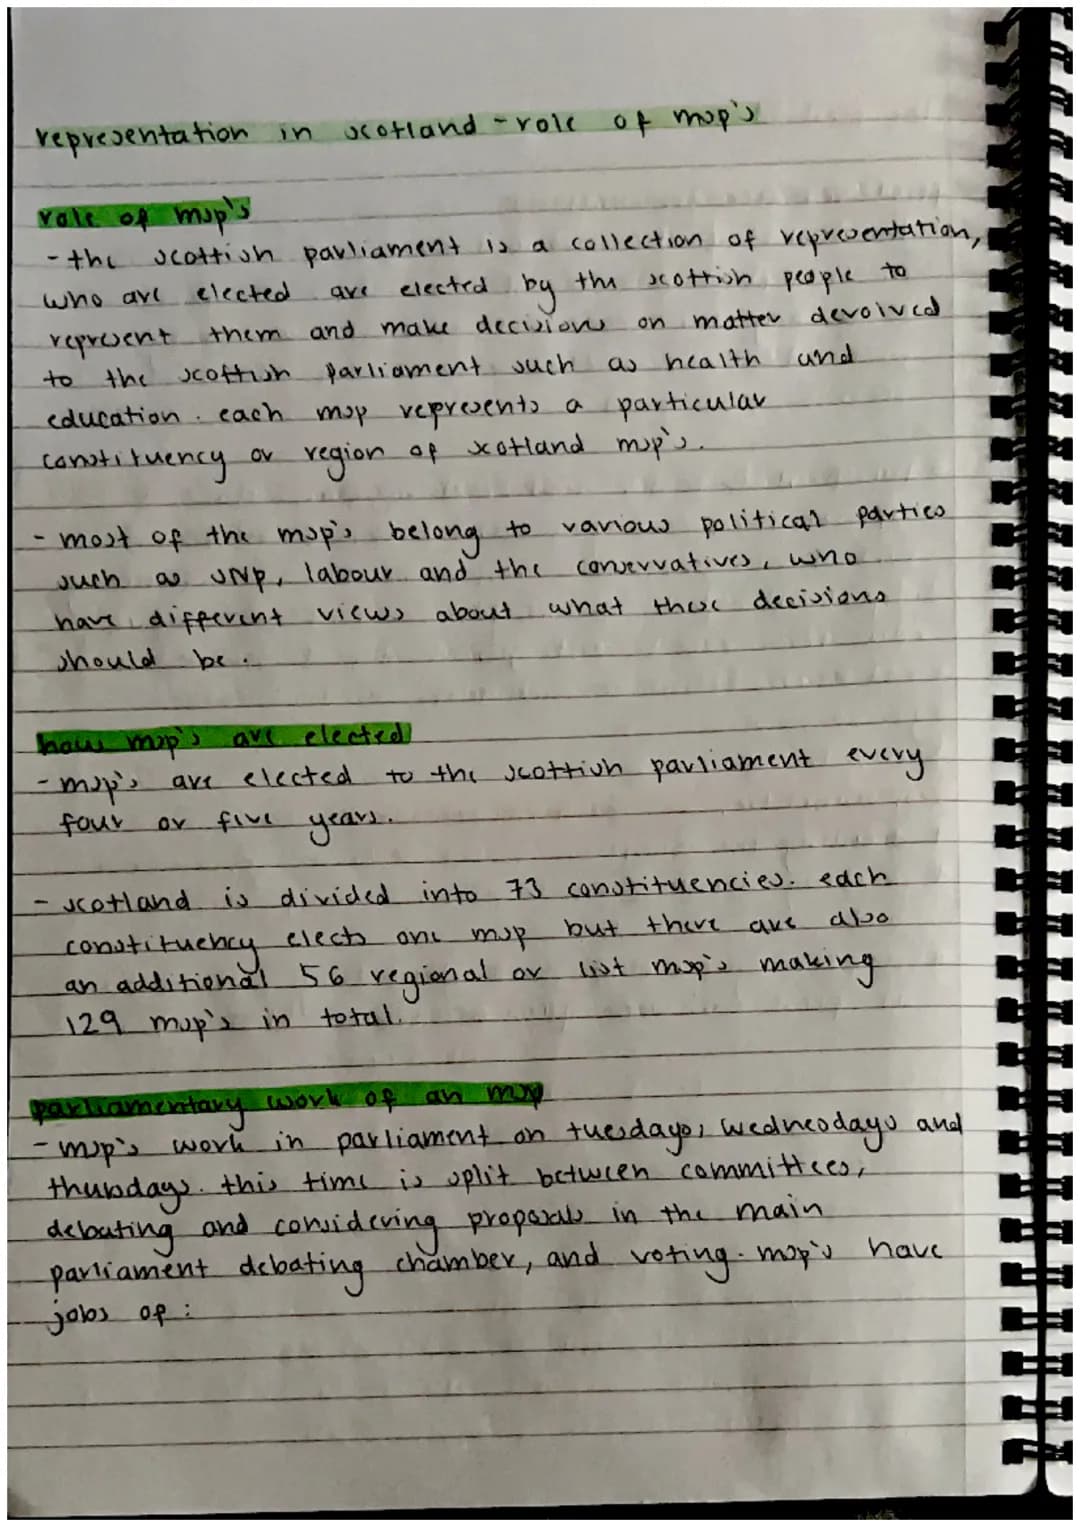 representation in scotland - role of msp's
role of msp's
- the scottish parliament is a collection of representation,
who are elected are elected by the scottish people to
represent them and make decisions on matter devolved
to the scottish parliament such as health and
education. each msp represents a particular
constituency or region of scotland msp's.
- most of the msp's belong to various political parties
such as SNP, labour and the conservatives, who
have different views about what these decisions
should be.
how msp's are elected
- msp's are elected to the scottish parliament every
four or five years.
- scotland is divided into 73 constituencies. each
constituency elects one msp but there are also
an additional 56 regional or list msp's making
129 msp's in total.
parliamentary work of an msp
- msp's work in parliament on tuesdays, wednesdays and
thursdays. this time is split between committees,
debating and considering proposals in the main
parliament debating chamber, and voting. msp's have
jobs of :